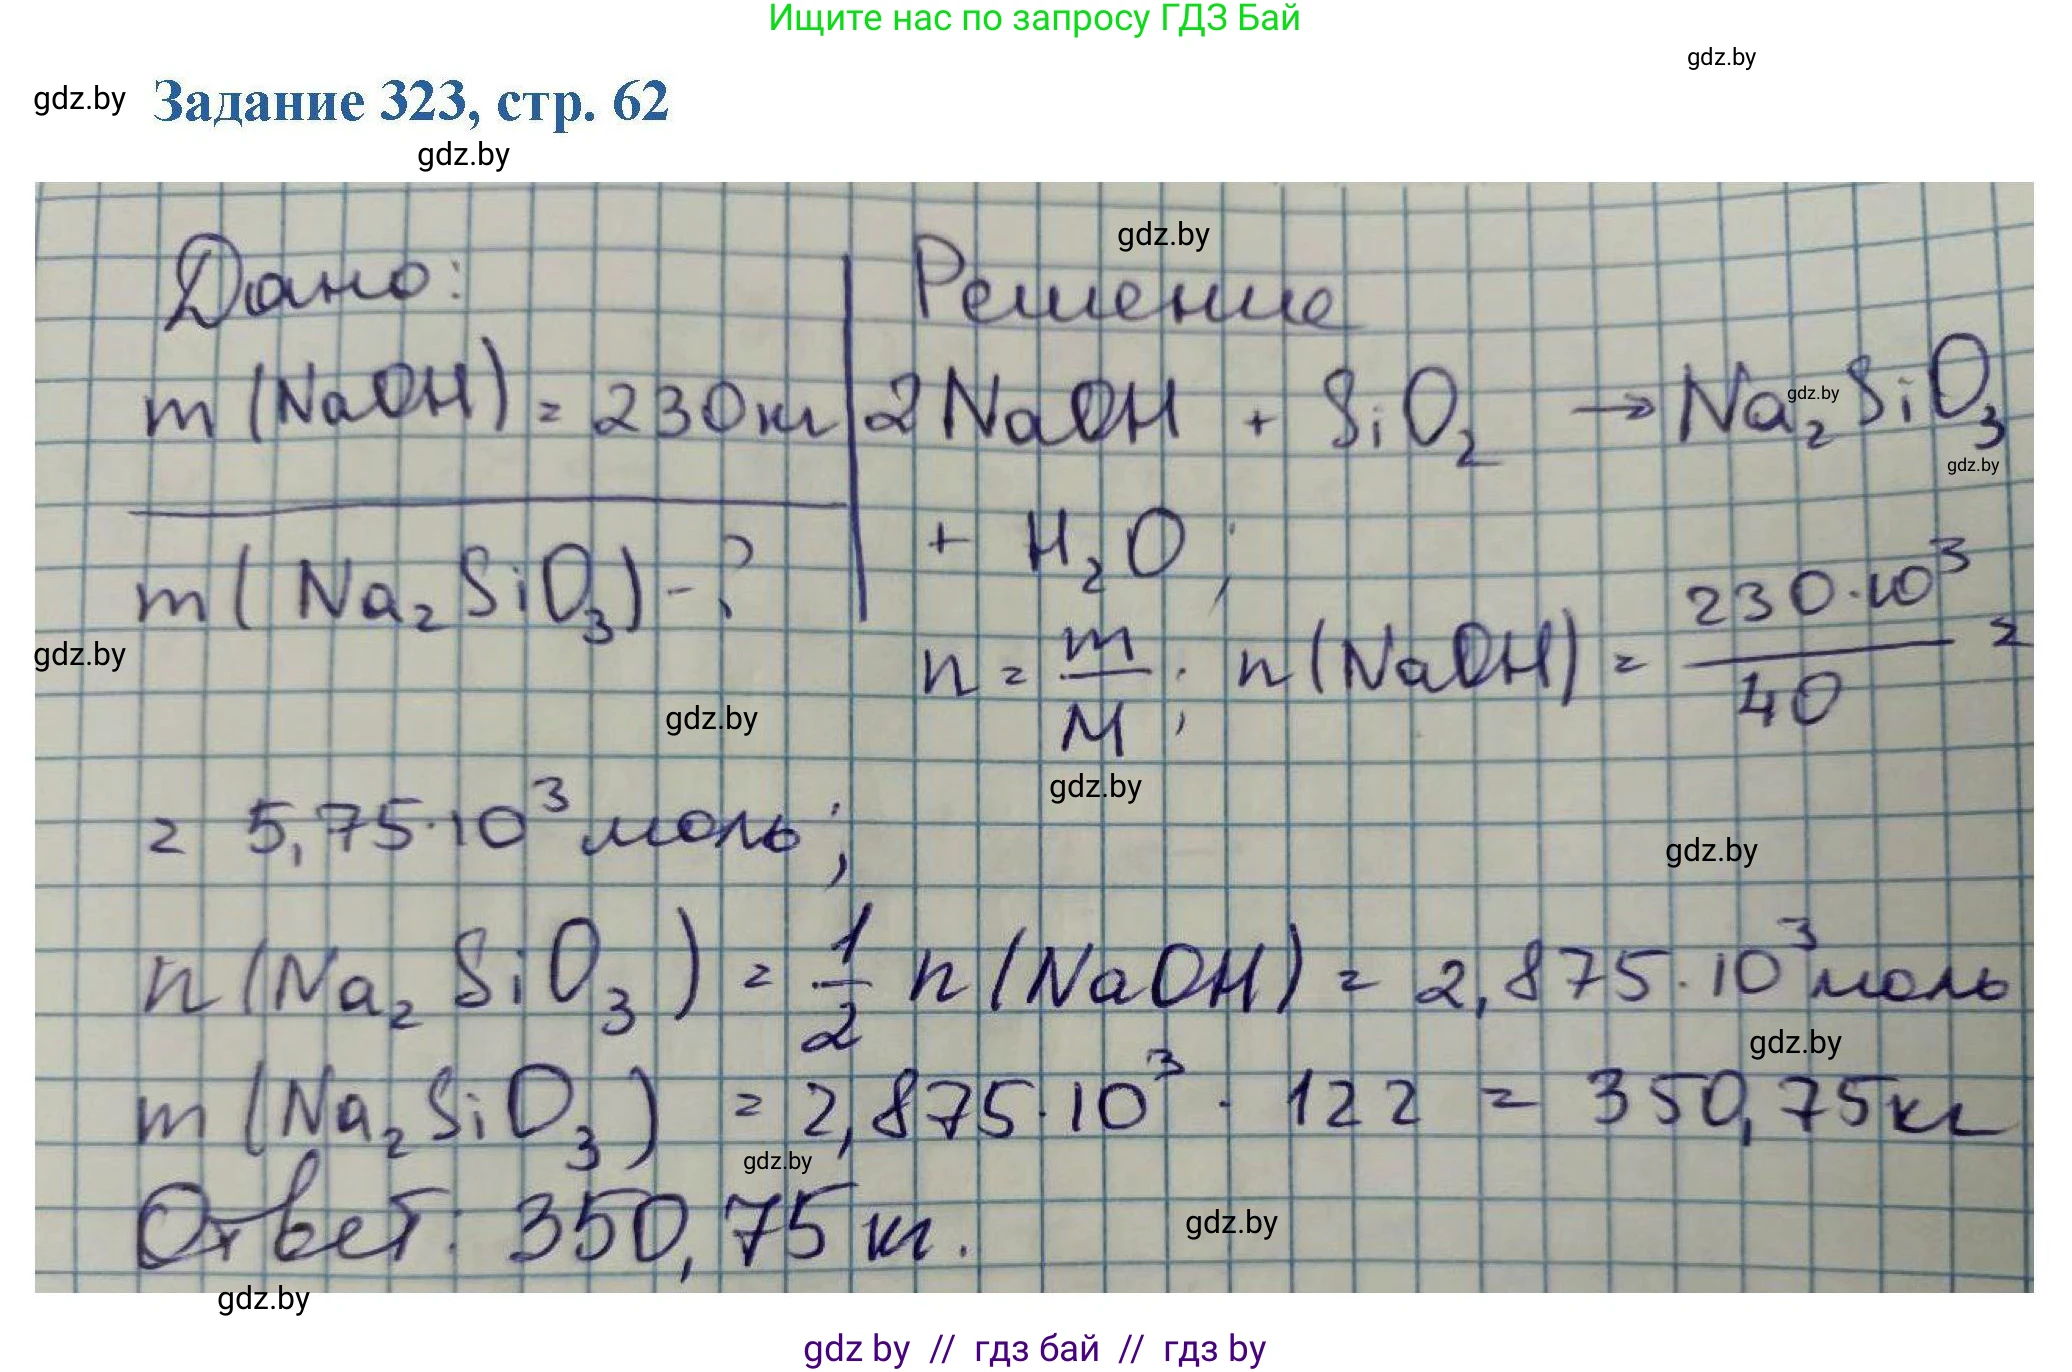 Ищите нас по запросу ГДЗ Бай
gdz.by
gdz.by Задание 323, стр. 62
gdz.by
gdz.by
Дано: Решение
m (NaOH) = 230 кг 2NaOH + SiO₂ → Na₂SiO₃
gdz.by
gdz.by
+ H₂O;
m (Na₂SiO₃) - ?
n = m/M; n (NaOH) = 230·10³/40 =
gdz.by
gdz.by
gdz.by
= 5,75·10³ моль;
gdz.by
n (Na₂SiO₃) = 1/2 n (NaOH) = 2,875·10³ моль
gdz.by
m (Na₂SiO₃) = 2,875·10³ · 122 = 350,75 кг
gdz.by
Ответ: 350,75 кг.
gdz.by
gdz.by
gdz by // гдз бай // гдз by